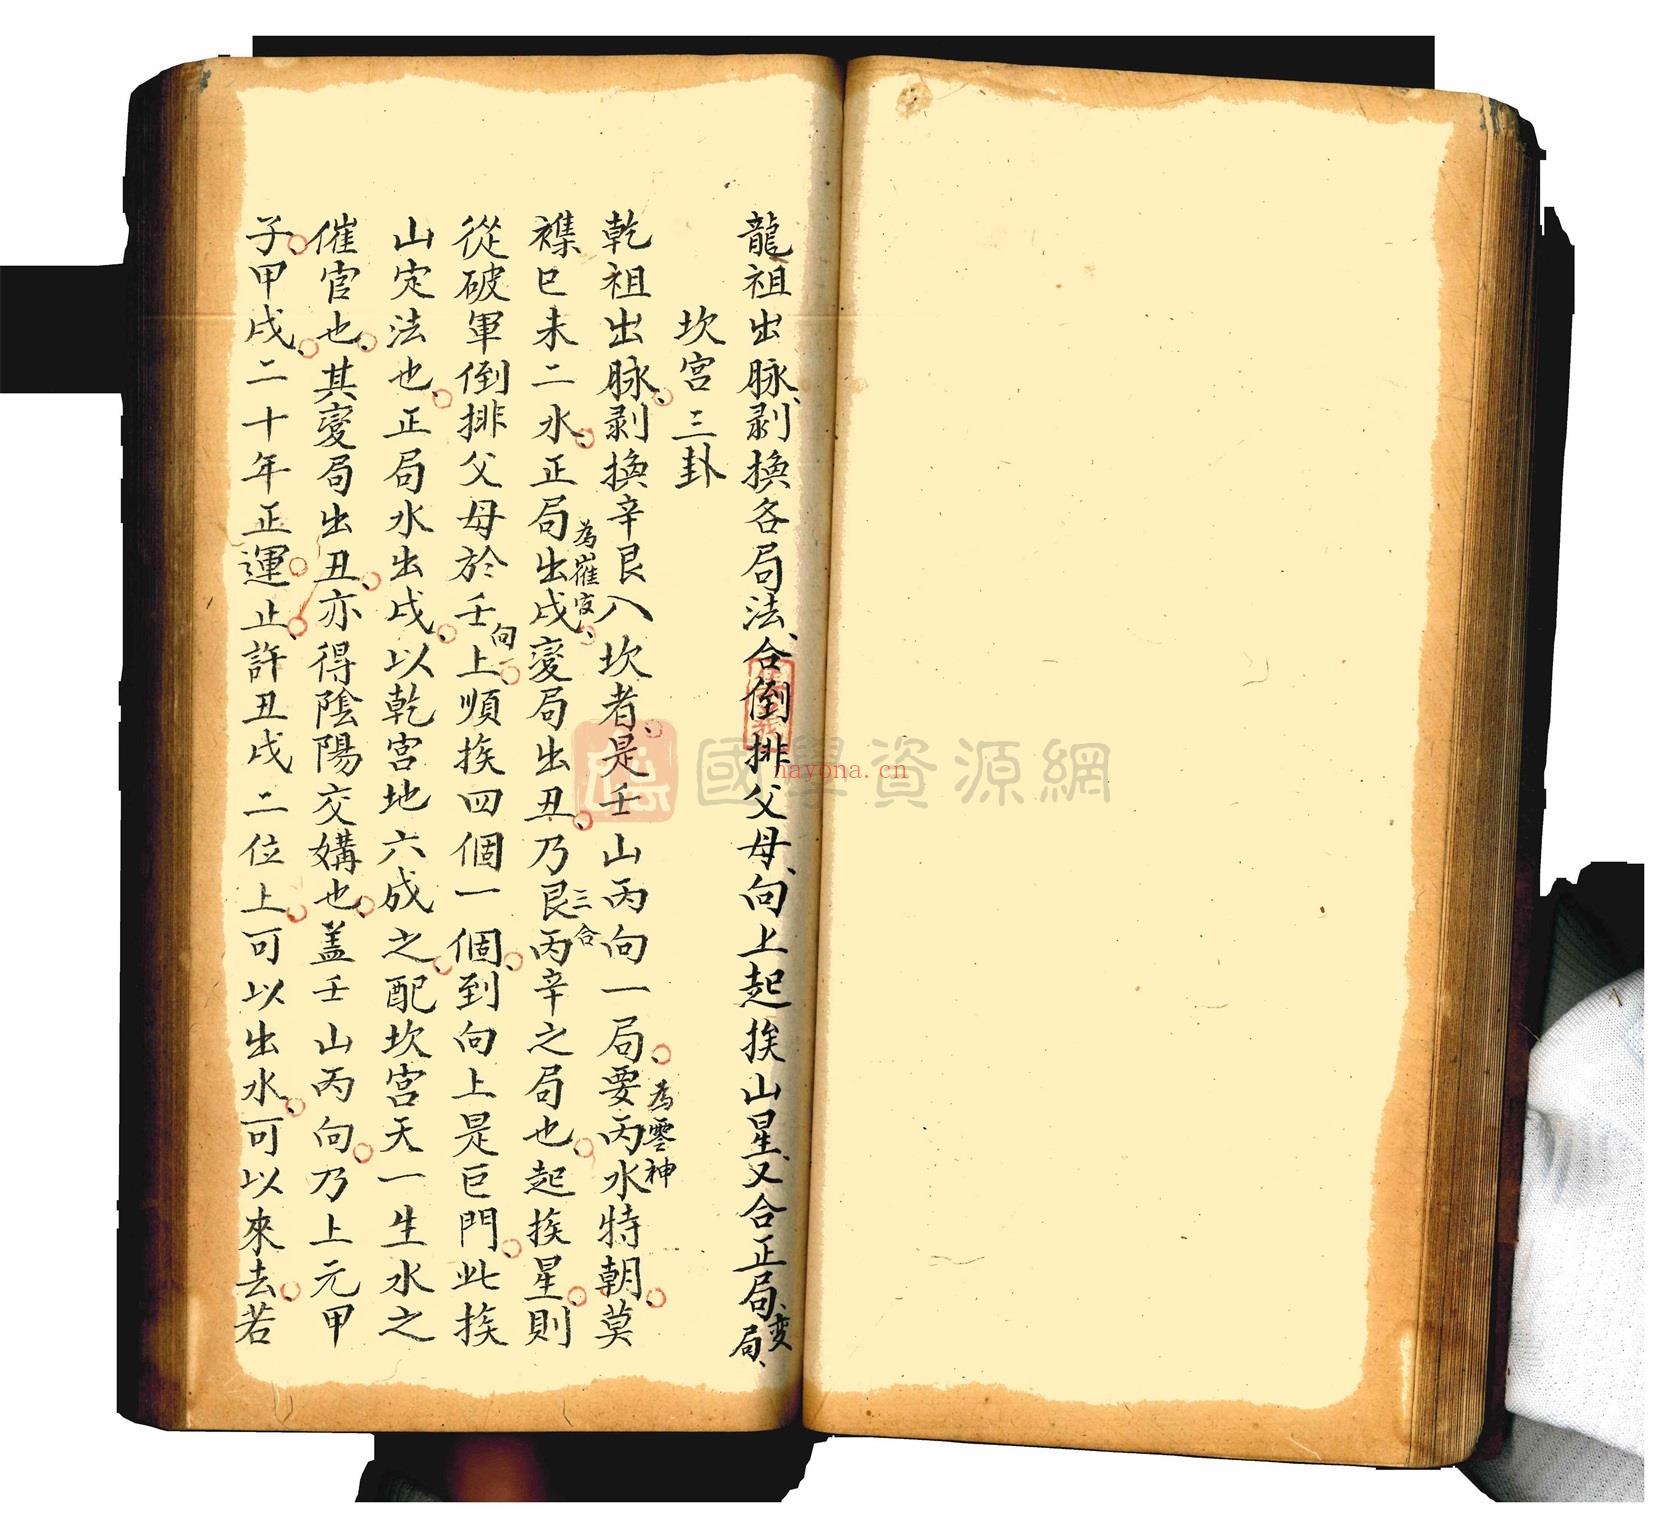 龍祖出脉、剥換各局法、合倒排父母、向上起挨山星、又合正局变局、
坎宮三卦
乾祖出脉、剥換辛艮入坎者是壬山丙向一局要丙水特朝莫
為零神
襍巳未二水、正局出戌、變局出丑、乃艮丙辛之局也起挨星、則
為催官、
三合
從破軍倒排父母於壬上順挨四個一個到向上是巨門此挨
向
山定法也、正局水出戌、以乾宮地六成之、配坎宮天一生水之
催官也、其變局出丑、亦得陰陽交媾也、蓋壬山丙向、乃上元甲
子、甲戌、二十年正運止、許丑戌二位上、可以出水、可以來去、若
國學資源網
nayona.cn